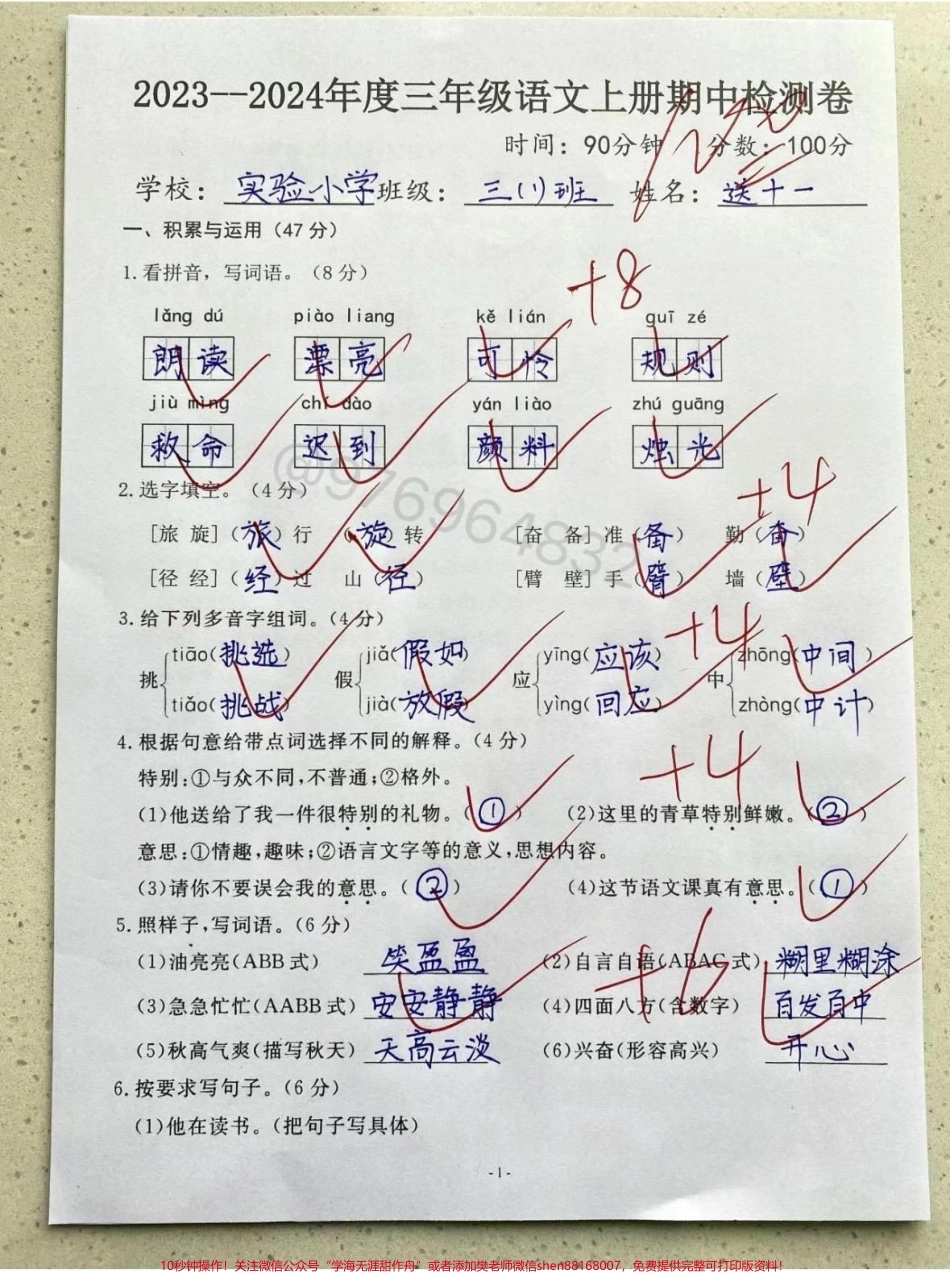 2023--2024年度三年级语文上册期中检测卷
时间：90分钟 分数：100分
学校：实验小学 班级：三（1）班 姓名：送十一
一、积累与运用（47分）
1.看拼音，写词语。（8分）
+8
lǎng dú piào liang kě lián guī zé
朗读 漂亮 可怜 规则
jiù mìng chí dào yán liào zhú guāng
救命 迟到 颜料 烛光
@976964832
2.选字填空。（4分）
+4
[旅 旋]（旅）行 （旋）转 [奋 备]准（备） 勤（奋）
[径 经]（经）过 山（径） [臂 壁]手（臂） 墙（壁）
3.给下列多音字组词。（4分）
+4
tiāo(挑选) jiǎ(假如) yīng(应该) zhōng(中间)
挑 假 应 中
tiǎo(挑战) jià(放假) yìng(回应) zhòng(中计)
4.根据句意给带点词选择不同的解释。（4分）
+4
特别：①与众不同，不普通；②格外。
(1)他送给了我一件很特别的礼物。（①） (2)这里的青草特别鲜嫩。（②）
意思：①情趣，趣味；②语言文字等的意义，思想内容。
(3)请你不要误会我的意思。（②） (4)这节语文课真有意思。（①）
5.照样子，写词语。（6分）
+6
(1)油亮亮(ABB式) 笑盈盈 (2)自言自语(ABAC式) 糊里糊涂
(3)急急忙忙(AABB式) 安安静静 (4)四面八方(含数字) 百发百中
(5)秋高气爽(描写秋天) 天高云淡 (6)兴奋(形容高兴) 开心
6.按要求写句子。（6分）
(1)他在读书。(把句子写具体)
-1-
10秒钟操作！关注微信公众号“学海无涯甜作舟”或者添加樊老师微信shen88168007，免费提供完整可打印版资料！